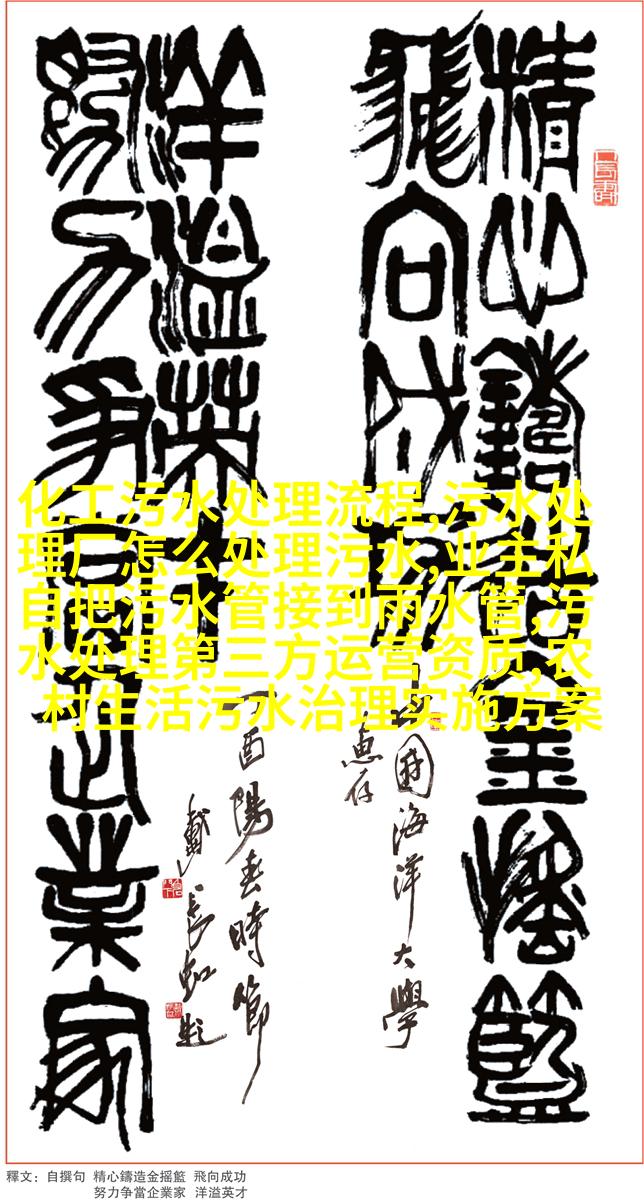 精心鑄造金搖籃
飛向成功
中國海洋大學
惠存
努力爭當企業家
洋溢英才
酉陽春時節
戴長虹題
化工污水处理流程,污水处
理厂怎么处理污水,业主私
自把污水管接到雨水管,污
水处理第三方运营资质,农
村生活污水治理实施方案
釋文：自撰句 精心鑄造金摇籃 飛向成功
努力争當企業家 洋溢英才